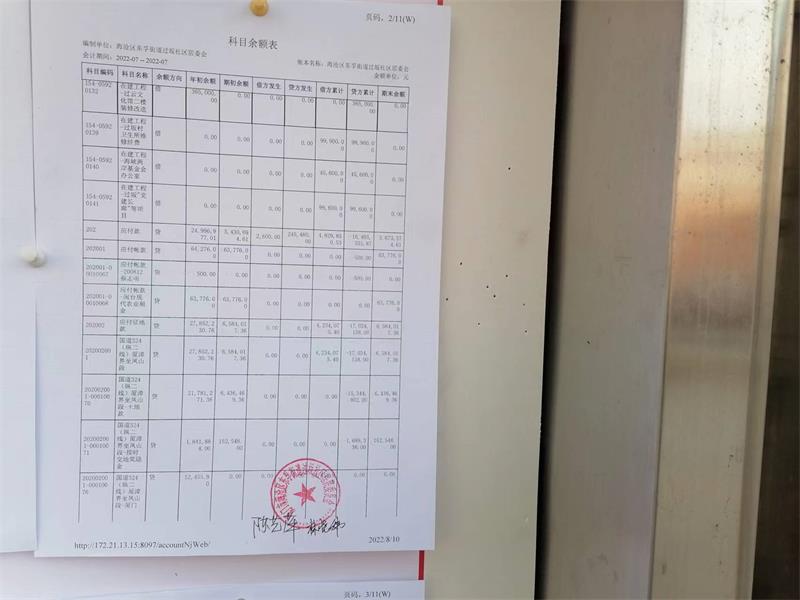 页码, 2/11(W)
科目余额表
编制单位: 海沧区东孚街道过坂社区居委会
会计期间: 2022-07 -- 2022-07
账本名称: 海沧区东孚街道过坂社区居委会
金额单位: 元
科目编码 科目名称 余额方向 年初余额 期初余额 借方发生 贷方发生 借方累计 贷方累计 期末余额
154-0592 在建工程 借 365,000, 0.00 0.00 0.00 0.00 365,000. 0.00
0132 -过云文 00 00
化馆二楼
装修改造
154-0592 在建工程 借 0.00 0.00 0.00 0.00 99,900.0 99,900.0 0.00
0139 -过坂村 0 0
卫生所维
修经费
154-0592 在建工程 借 0.00 0.00 0.00 0.00 45,600.0 45,600.0 0.00
0140 -海峡两 0 0
岸基金会
办公室
154-0592 在建工程 借 0.00 0.00 0.00 0.00 99,600.0 99,600.0 0.00
0141 -过坂"党 0 0
建长
廊"等项
目
202 应付款 贷 2,600.00 245,480.
00
202001 应付帐款 贷 64,276.0 63,776.0 0.00 0.00 0.00 -500.00 63,776.0
0 0 0
202001-0 应付帐款 贷 500.00 0.00 0.00 0.00 0.00 -500.00 0.00
0010067 -200812
202001-0 应付帐款 贷 63,776.0 63,776.0 0.00 0.00 0.00 0.00 63,776.0
0010068 -闽台现 0 0 0
代农业租
金
202002 应付征地 贷 27,852,2 6,584,01 0.00 0.00 4,234,07 -17,034, 6,584,01
款 30.76 7.36 5.40 138.00 7.36
20200200 国道324 贷 27,852,2 6,584,01 0.00 0.00 4,234,07 -17,034, 6,584,01
1 (纵二 30.76 7.36 5.40 138.00 7.36
线)厦漳
界至凤山
段
20200200 国道324 贷 21,781,2 6,436,46 0.00 0.00 0.00 -15,344, 6,436,46
1-000100 (纵二 71.36 9.36 802.00 9.36
70 线)厦漳
界至凤山
段-土地
款
20200200 国道324 贷 1,841,88 152,548. 0.00 0.00 0.00 -1,689,3 152,548.
1-000100 (纵二 4.00 00 36.00 00
71 线)厦漳
界至凤山
段-按时
交地奖励
金
20200200 国道324 贷 0.00 0.00 0.00 0.00 0.00 0.00
1-000100 (纵二
76 线)厦漳
界至凤山
段-厦门
http://172.21.13.15:8097/accountNjWeb/
2022/8/10
页码, 3/11(W)